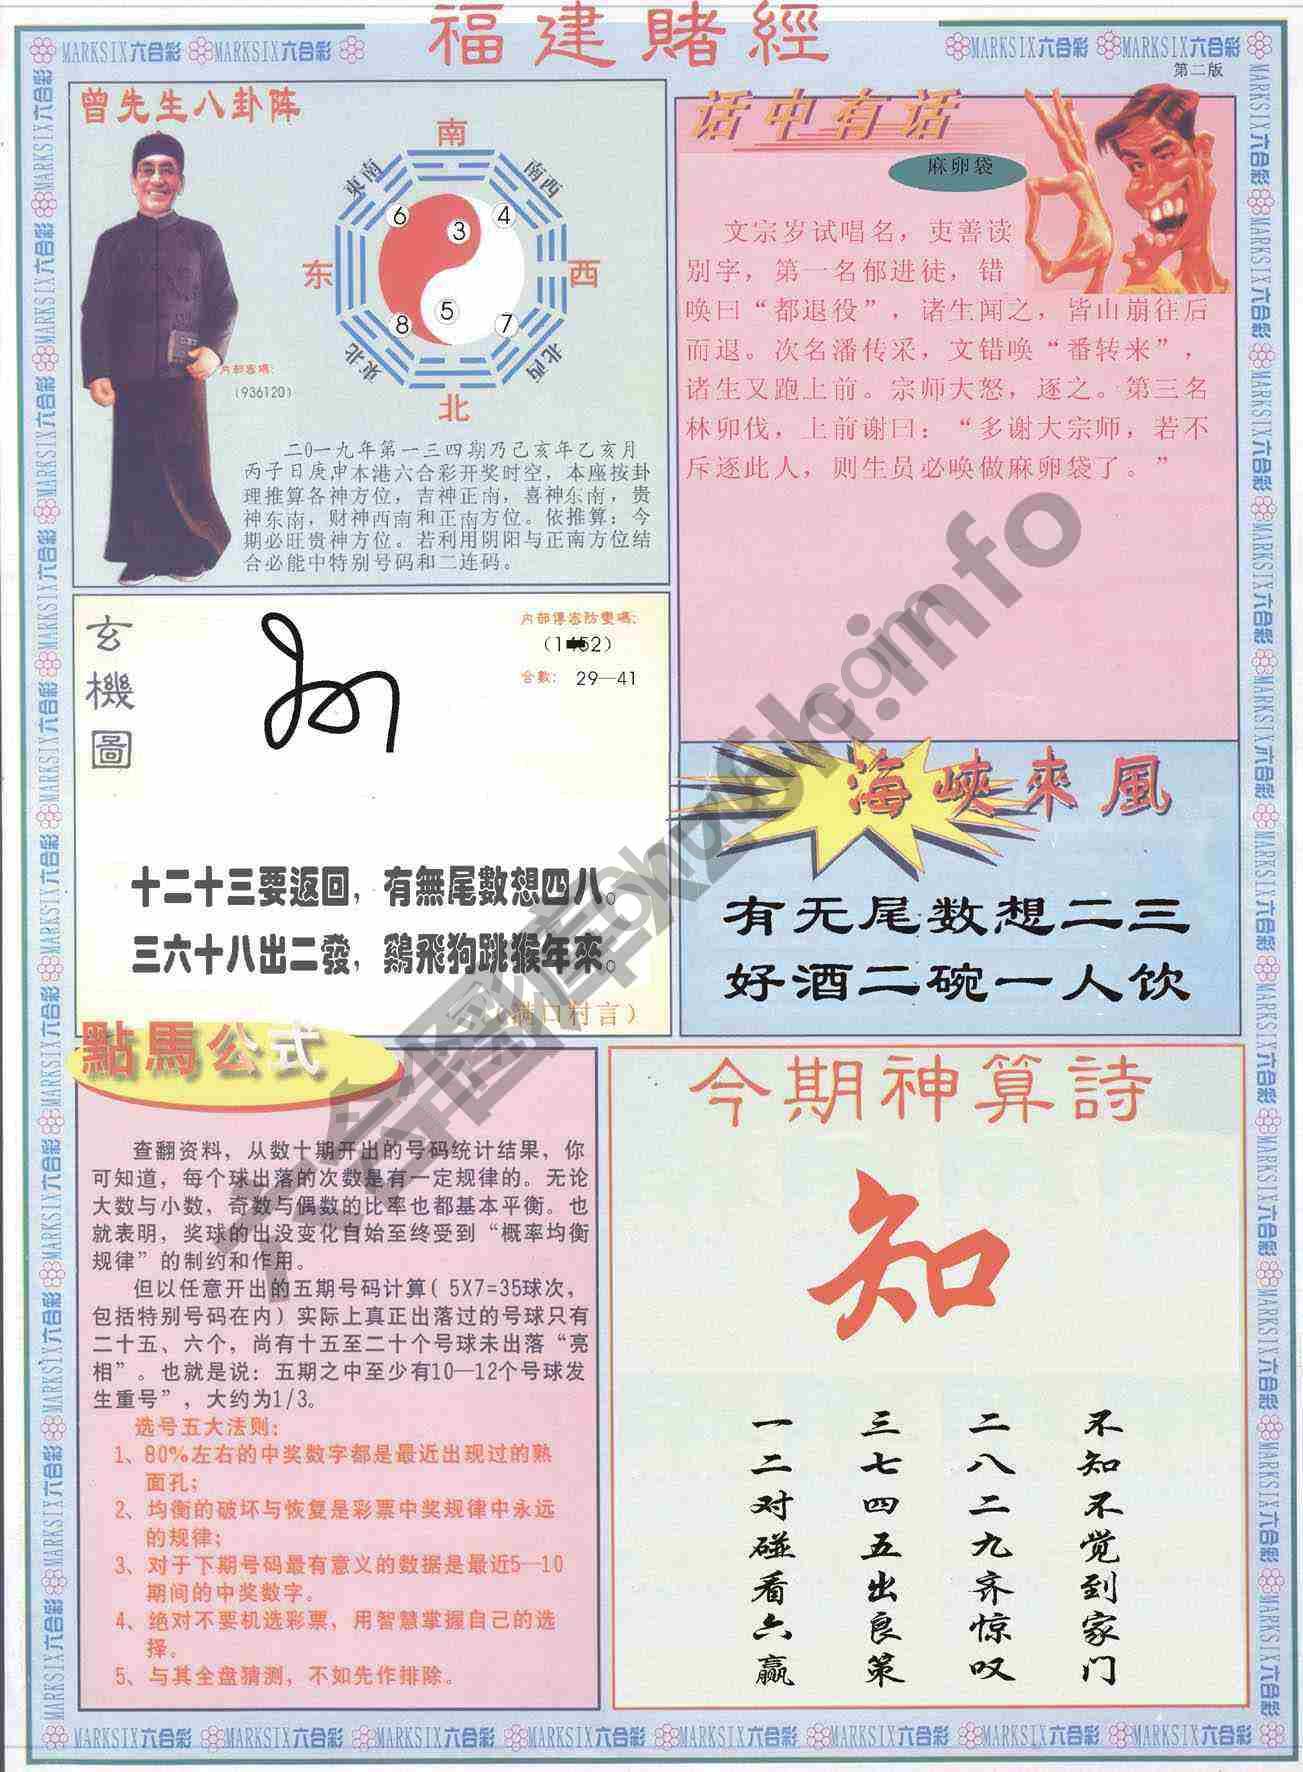 福建賭經
MARKSIX六合彩 MARKSIX六合彩
MARKSIX六合彩 MARKSIX六合彩
第二版
曾先生八卦阵
南
東南
南西
6
3
4
东
西
5
8
7
東北
北西
北
内部密碼:
(936120)
二0一九年第一三四期乃己亥年乙亥月
丙子日庚申本港六合彩开奖时空，本座按卦
理推算各神方位，吉神正南，喜神东南，贵
神东南，财神西南和正南方位。依推算：今
期必旺贵神方位。若利用阴阳与正南方位结
合必能中特别号码和二连码。
话中有话
麻卵袋
文宗岁试唱名，吏善读
别字，第一名郁进徒，错
唤曰“都退役”，诸生闻之，皆山崩往后
而退。次名潘传采，文错唤“番转来”，
诸生又跑上前。宗师大怒，逐之。第三名
林卯伐，上前谢曰：“多谢大宗师，若不
斥逐此人，则生员必唤做麻卵袋了。”
玄機圖
合數: 29—41
十二十三要返回，有無尾數想四八。
三六十八出二發，鷄飛狗跳猴年來。
（满口村言）
海峽來風
有无尾数想二三
好酒二碗一人饮
點馬公式
查翻资料，从数十期开出的号码统计结果，你
可知道，每个球出落的次数是有一定规律的。无论
大数与小数，奇数与偶数的比率也都基本平衡。也
就表明，奖球的出没变化自始至终受到“概率均衡
规律”的制约和作用。
但以任意开出的五期号码计算( 5X7=35球次，
包括特别号码在内）实际上真正出落过的号球只有
二十五、六个，尚有十五至二十个号球未出落“亮
相”。也就是说：五期之中至少有10—12个号球发
生重号”，大约为1/3。
选号五大法则：
1、80%左右的中奖数字都是最近出现过的熟
面孔；
2、均衡的破坏与恢复是彩票中奖规律中永远
的规律；
3、对于下期号码最有意义的数据是最近5—10
期间的中奖数字。
4、绝对不要机选彩票，用智慧掌握自己的选
择。
5、与其全盘猜测，不如先作排除。
今期神算詩
知
不知不觉到家门
二八二九齐惊叹
三七四五出良策
一二对碰看六赢
MARKSIX六合彩 MARKSIX六合彩 MARKSIX六合彩 MARKSIX六合彩 MARKSIX六合彩 MARKSIX六合彩 MARKSIX六合彩 MARKSIX六合彩